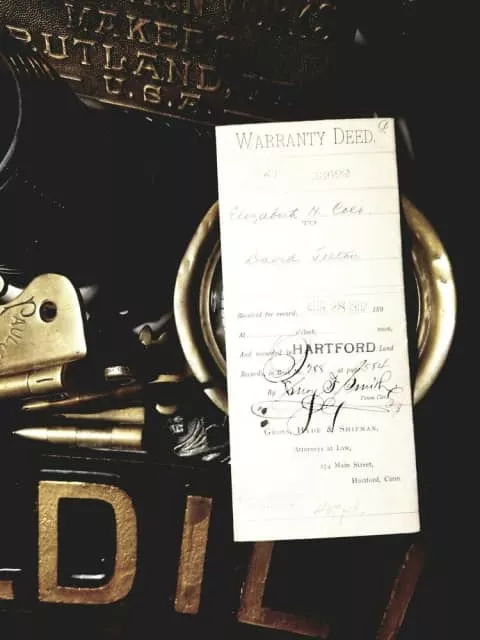 MAKERS
RUTLAND,
U.S.A.
WARRANTY DEED.
Elizabeth H. Cole
TO
David Tilton
Received for record, 189
At o'clock, noon,
And recorded in HARTFORD Land
Records, in Book 288 at page 584
By Henry F. Smith
Town Clerk
GROSS, HYDE & SHIPMAN,
Attorneys at Law,
174 Main Street,
Hartford, Conn.
PAUL
DIL